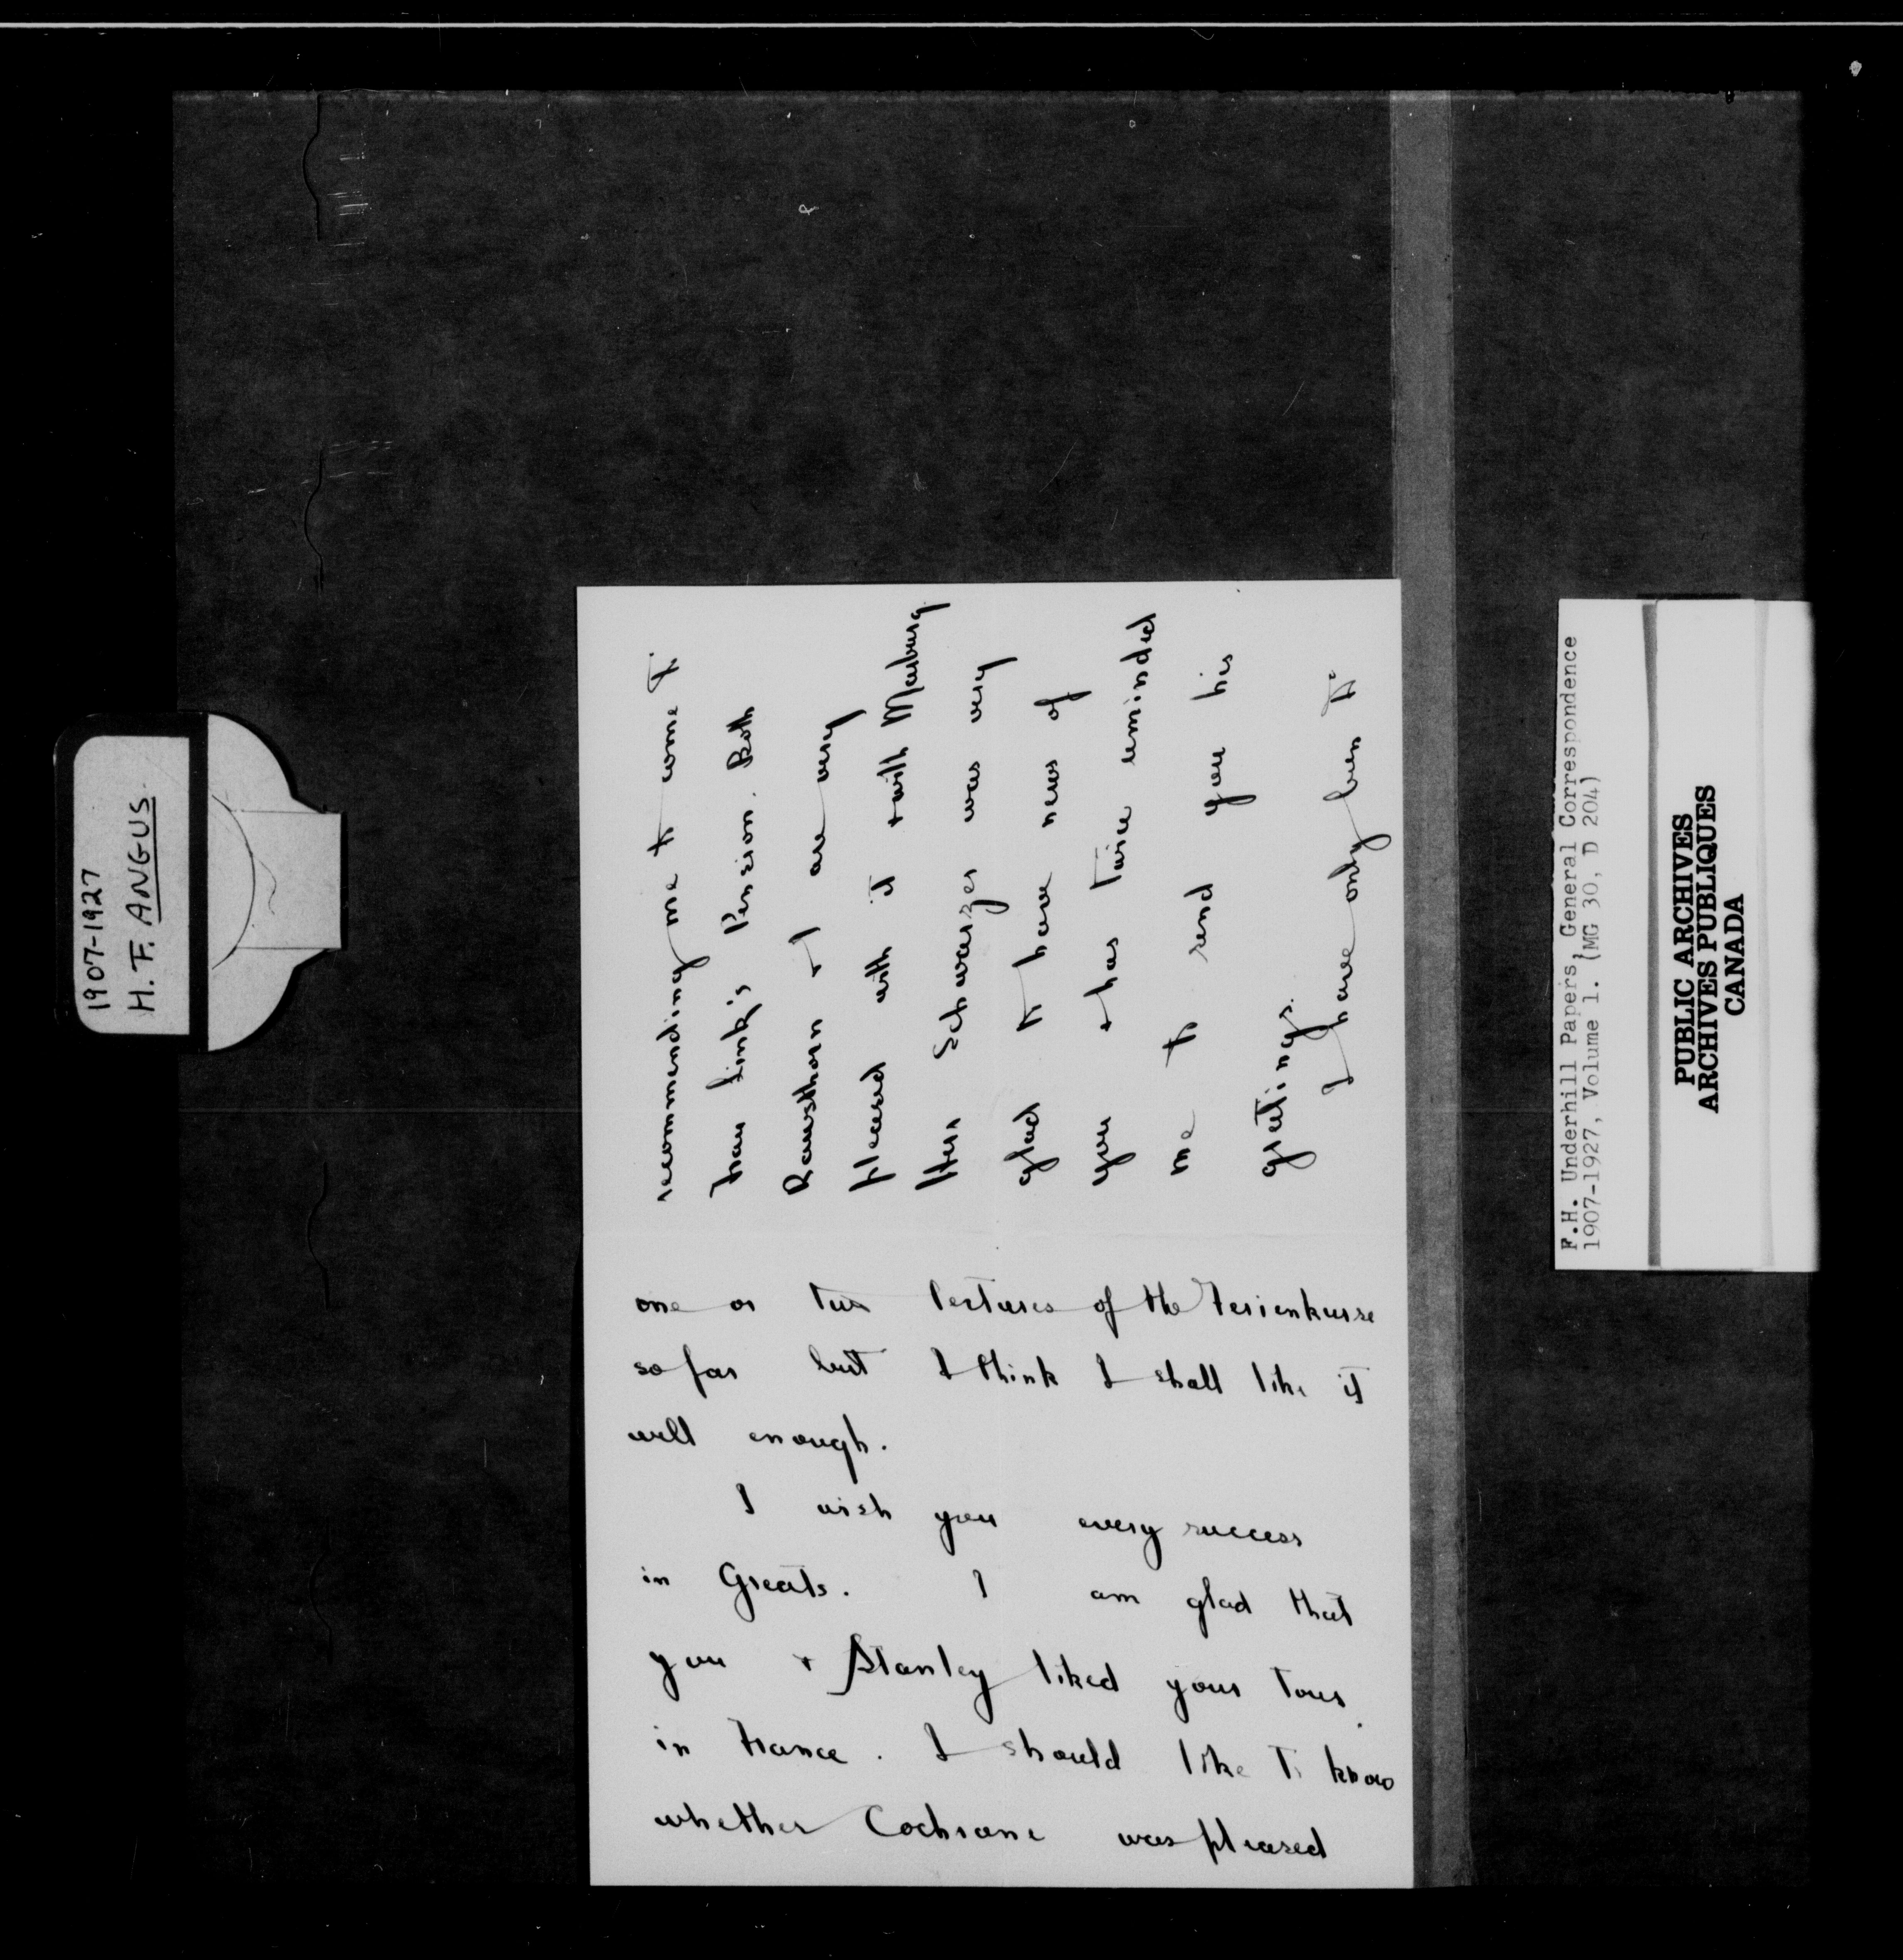 1907-1927
H. F. ANGUS.
recommending me to come to
Frau Link's Pension. Both
Rawsthorn & I are very
pleased with it & with Marburg
Herr Schwarzer was very
glad to have news of
you & has twice reminded
me to send you his
greetings.
I have only been to
one or two lectures of the Ferienkurse
so far but I think I shall like it
well enough.
I wish you every success
in Greats. I am glad that
you & Stanley liked your tour
in France. I should like to know
whether Cochrane was pleased
F.H. Underhill Papers, General Correspondence
1907-1927, Volume 1. (MG 30, D 204)
PUBLIC ARCHIVES
ARCHIVES PUBLIQUES
CANADA